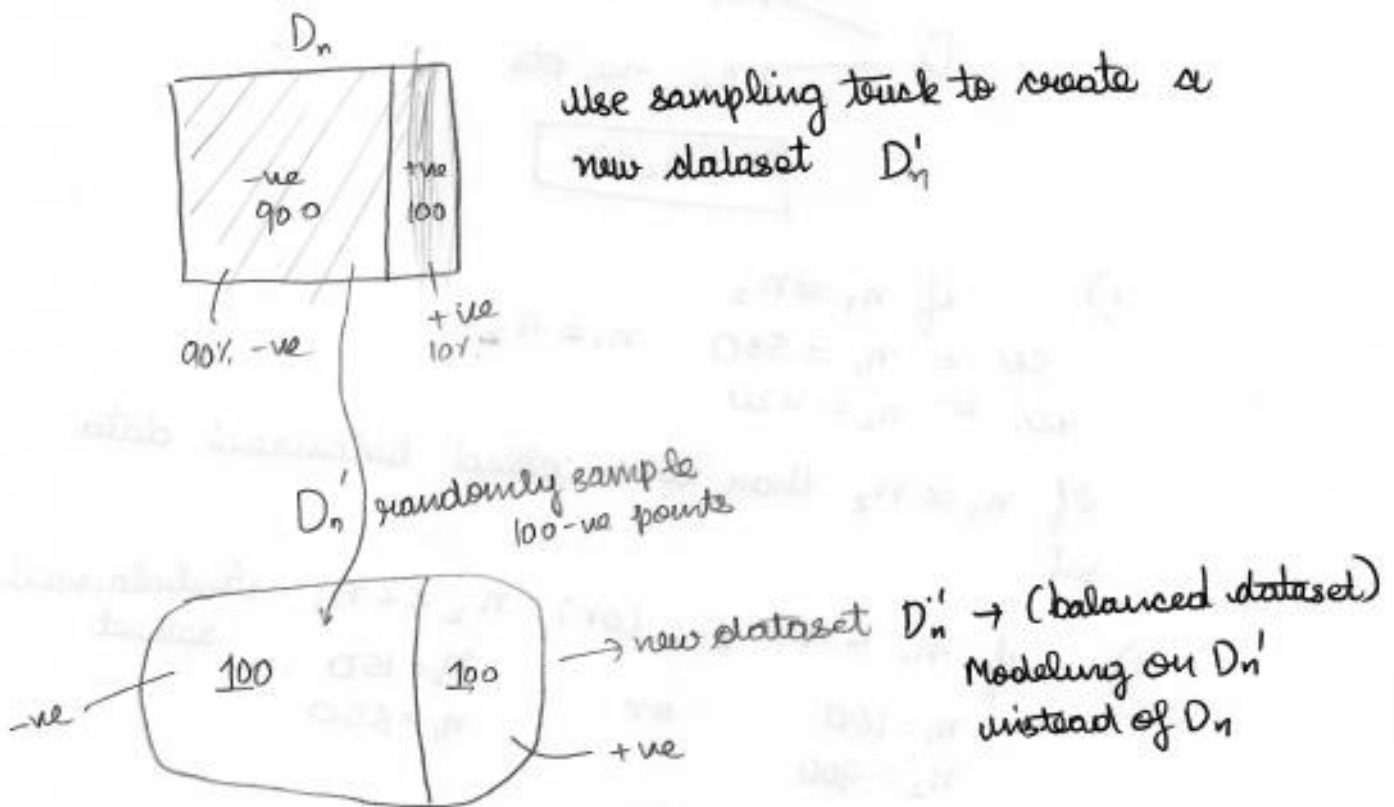 Dn
Use sampling trick to create a
new dataset Dn'
-ve
900
+ve
100
90% -ve
+ve
10%
Dn' randomly sample
100 -ve points
100
100
-ve
+ve
→ new dataset Dn' → (balanced dataset)
Modeling on Dn'
instead of Dn